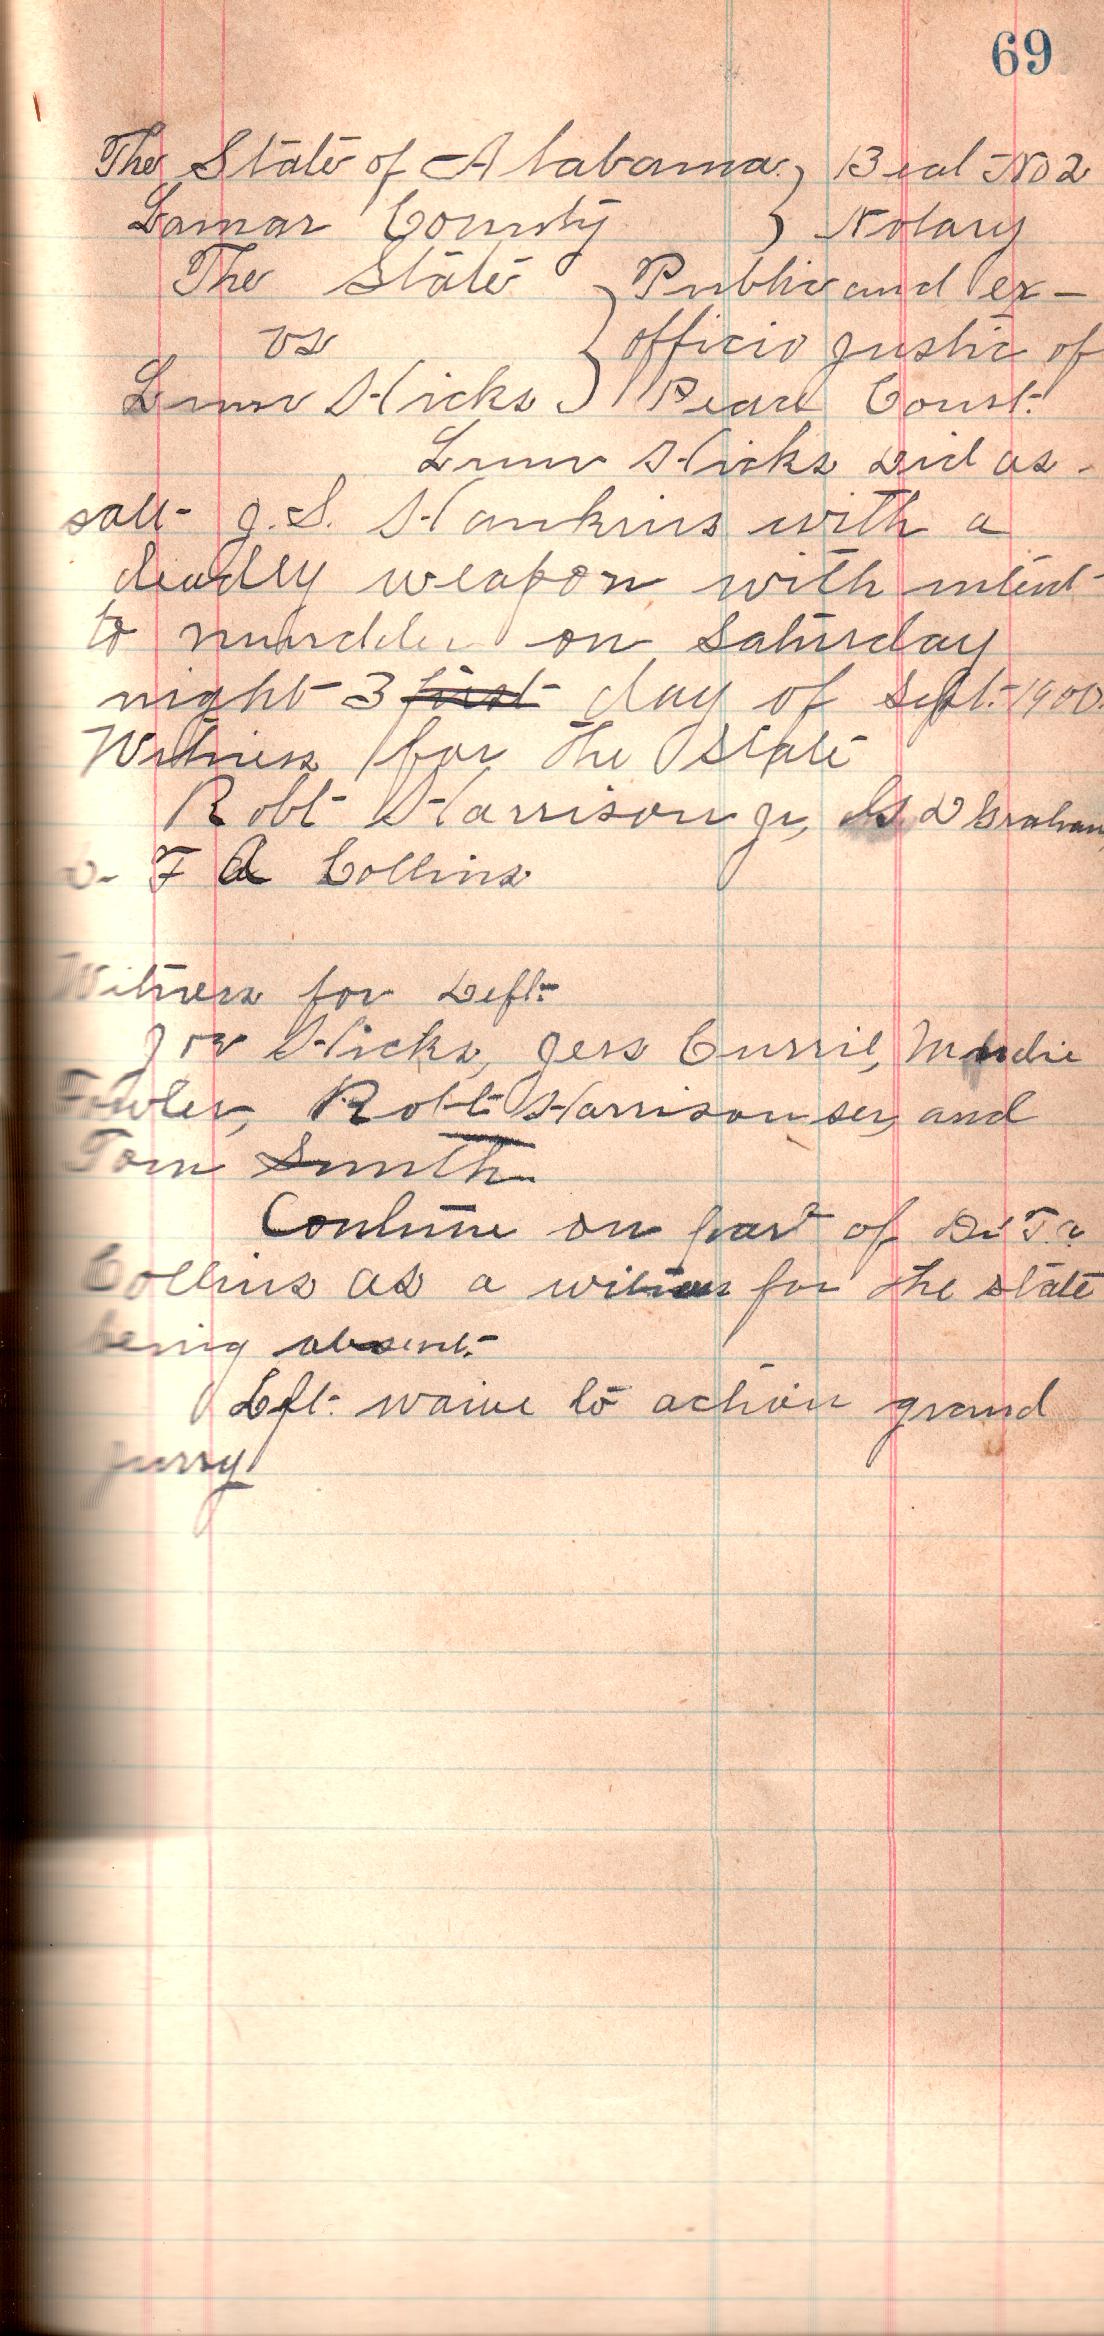 69
The State of Alabama } Beat No 2
Lamar County } Notary
The State } Public and ex-
vs } officio Justic of
Hicks } Peace Court.
Hicks did as-
salt J.S. Hankins with a
deadly weapon with intent
to murdder on Saturday
night 3 first day of Sept. 1900.
Witness for the State
Robt Harrison Jr, D Graham
F A Collins
Witness for Deft.
Joe Hicks, Jess Currie,
Fowler, Robt Harrison ser, and
Tom Smith
Continue on part of
Collins as a witness for the state
being absent.
Deft. waive to action grand
jurry